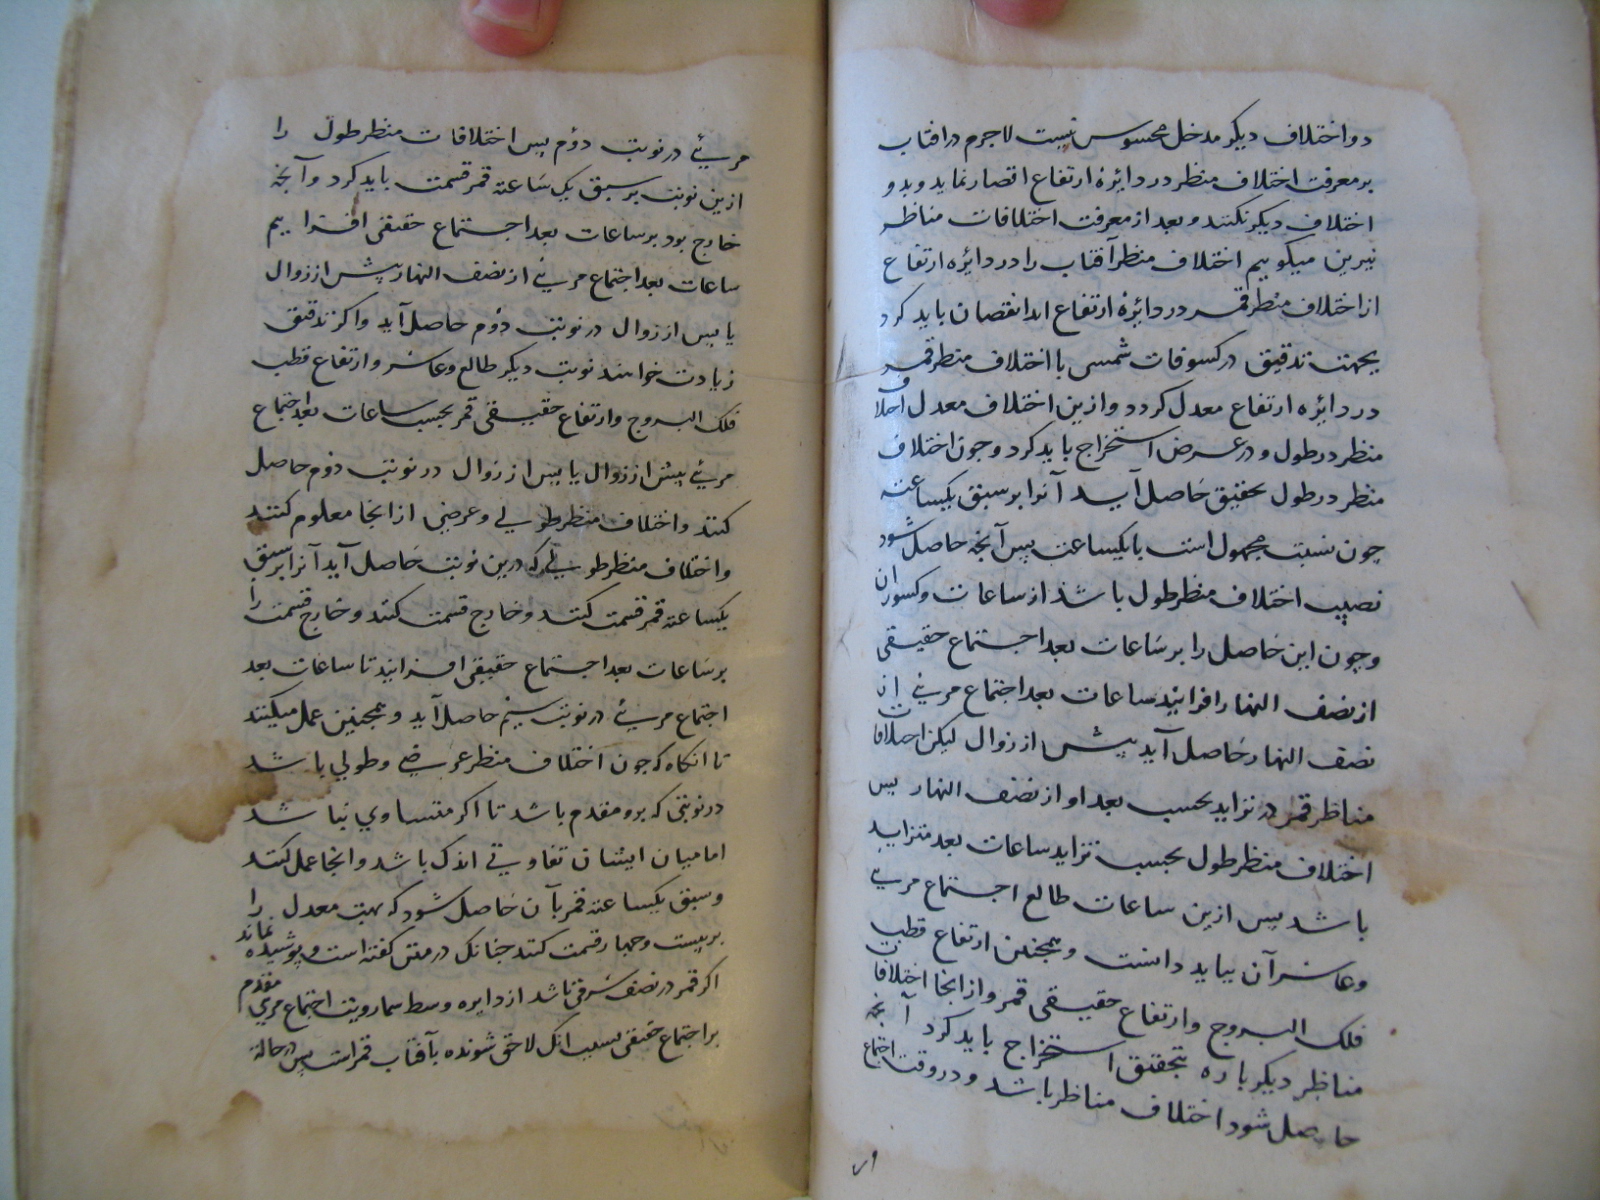 دو اختلاف دیکر مدخل محسوس نیست لاجرم در افتاب
بر معرفت اختلاف منظر در دایرهٔ ارتفاع اقتصار نماید و بدو
اختلاف دیکر نکنند و بعد از معرفت اختلافات مناظر
نیرین میکوییم اختلاف منظر آفتاب را در دایره ارتفاع
از اختلاف منظر قمر در دایرهٔ ارتفاع او انقصان باید کرد
بجهت تدقیق در کسوفات شمسی با اختلاف منظر قمر
در دایره ارتفاع معدل کردد و ازین اختلاف معدل اختلاف
منظر در طول و در عرض استخراج باید کرد وجون اختلاف
منظر در طول بحقیق حاصل آید آنرا بر سبق یکساعته
جون نسبت مجهول است با یکساعت پس آنجه حاصل شود
نصیب اختلاف منظر طول باشد از ساعات و کسور ان
وجون این حاصل را بر ساعات بعد اجتماع حقیقی
از نصف النهار افزایند ساعات بعد اجتماع مریٔ از
نصف النهار حاصل آید پیش از زوال لیکن اختلافات
مناظر قمر در تزاید بحسب بعد او از نصف النهار پس
اختلاف منظر طول بحسب تزاید ساعات بعد متزاید
باشد پس ازین ساعات طالع اجتماع مریٔ
و عاشر آن بباید دانست و همجنین ارتفاع قطب
فلک البروج و ارتفاع حقیقی قمر و از انجا اختلافات
مناظر دیکر باره بتحقیق استخراج باید کرد آنجه
حاصل شود اختلاف مناظر باشد و در وقت اجتماع
مریٔ در نوبت دوم پس اختلافات منظر طول را
ازین نوبت بر سبق یک ساعته قمر قسمت باید کرد و آنجه
خارج بود بر ساعات بعد اجتماع حقیقی افزاییم
ساعات بعد اجتماع مریٔ از نصف النهار پیش از زوال
یا پس از زوال در نوبت دوم حاصل آید و اکر تدقیق
زیادت خواهند نوبت دیکر طالع و عاشر و ارتفاع قطب
فلک البروج و ارتفاع حقیقی قمر بحسب ساعات بعد اجتماع
مریٔ پیش از زوال یا پس از زوال در نوبت دوم حاصل
کنند و اختلاف منظر طولی و عرضی از انجا معلوم کنند
و اختلاف منظر طولی که درین نوبت حاصل آید آنرا بر سبق
یکساعته قمر قسمت کنند و خارج قسمت کنند و خارج قسمت را
بر ساعات بعد اجتماع حقیقی افزایند تا ساعات بعد
اجتماع مریٔ در نوبت سیم حاصل آید و همجنین عمل میکنند
تا انکاه که جون اختلاف منظر عرضی و طولی باشد
در نوبتی که برو مقدم باشد تا اکر متساوی نباشد
اما میان ایشان تفاوتی اندک باشد و انجا عمل کنند
و سبق یکساعته قمر بآن حاصل شود که بهت معدل را
بر بیست و جهار قسمت کنند جنانک در متن کفته است و پوشیده نماند
اکر قمر در نصف شرقی باشد از دایره وسط سما رویت اجتماع مریٔ مقدم
بر اجتماع حقیقی بسبب انک لاحق شونده بآفتاب قمر است پس در حالة